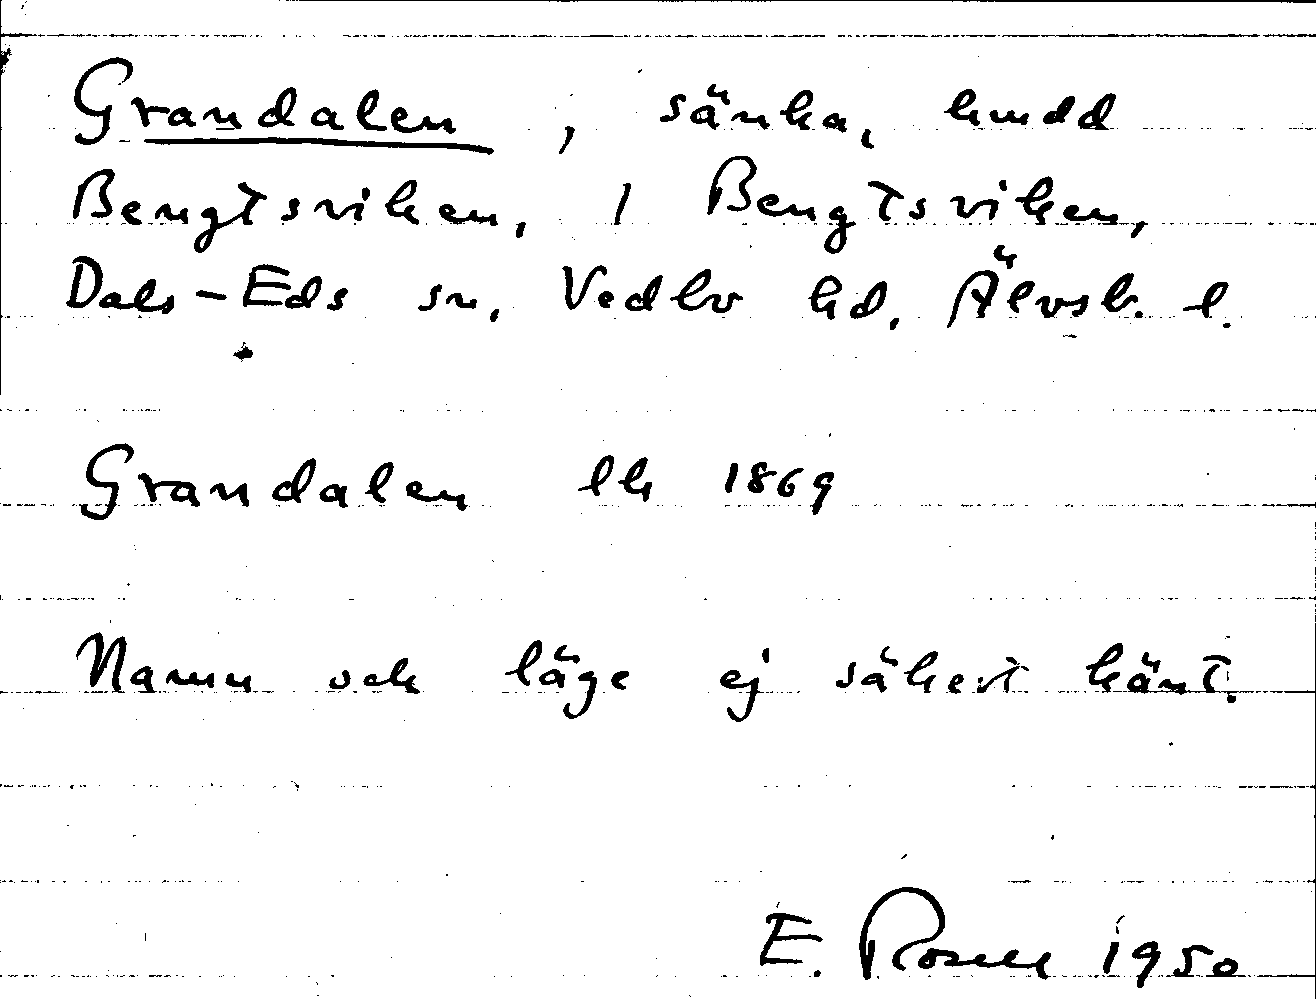 Grandalen, sänka,
Bengtsviken, 1 Bengtsviken,
Dals-Eds sn, Vedbo hd, Älvsb. l.
Grandalen lk 1869
Namn och läge ej säkert känt.
E. Rosell 1950